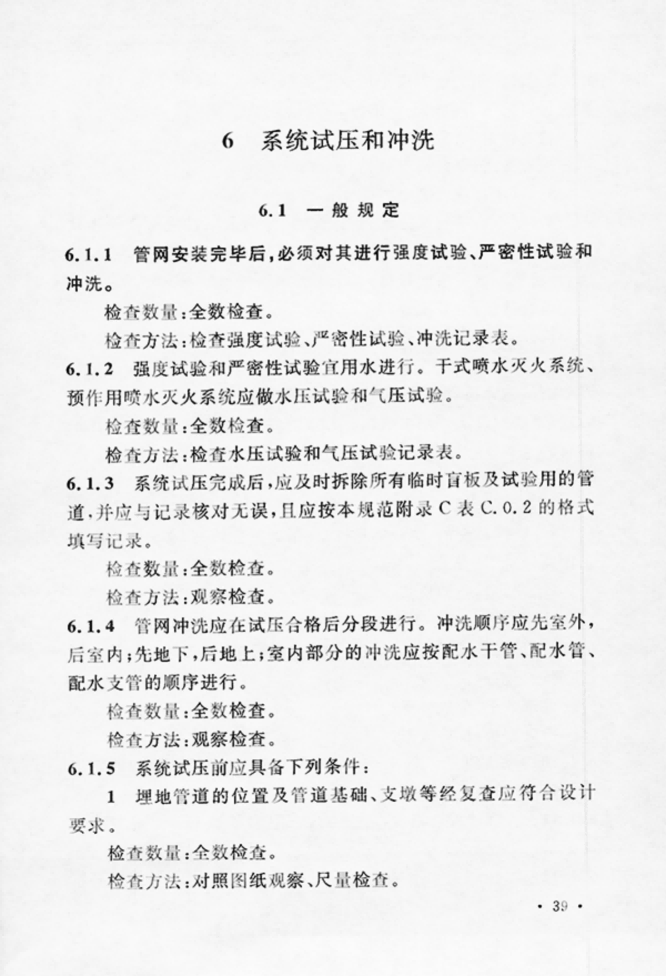 6 系统试压和冲洗
6.1 一般规定
6.1.1 管网安装完毕后,必须对其进行强度试验、严密性试验和
冲洗。
检查数量:全数检查。
检查方法:检查强度试验、严密性试验、冲洗记录表。
6.1.2 强度试验和严密性试验宜用水进行。干式喷水灭火系统、
预作用喷水灭火系统应做水压试验和气压试验。
检查数量:全数检查。
检查方法:检查水压试验和气压试验记录表。
6.1.3 系统试压完成后,应及时拆除所有临时盲板及试验用的管
道,并应与记录核对无误,且应按本规范附录C表C.0.2的格式
填写记录。
检查数量:全数检查。
检查方法:观察检查。
6.1.4 管网冲洗应在试压合格后分段进行。冲洗顺序应先室外,
后室内;先地下,后地上;室内部分的冲洗应按配水干管、配水管、
配水支管的顺序进行。
检查数量:全数检查。
检查方法:观察检查。
6.1.5 系统试压前应具备下列条件:
1 埋地管道的位置及管道基础、支墩等经复查应符合设计
要求。
检查数量:全数检查。
检查方法:对照图纸观察、尺量检查。
· 39 ·